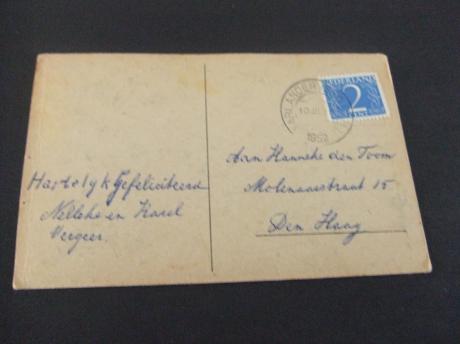 Hartelyk Gefeliciteerd
Nelleke en Karel
Vergeer.
NEDERLAND
2
CENT
1952
Aan Hanneke den Toom
Molenaarstraat 15
Den Haag